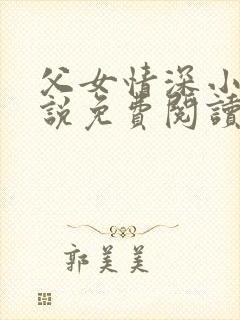 父女情深小
說免費閱讀
郭美美